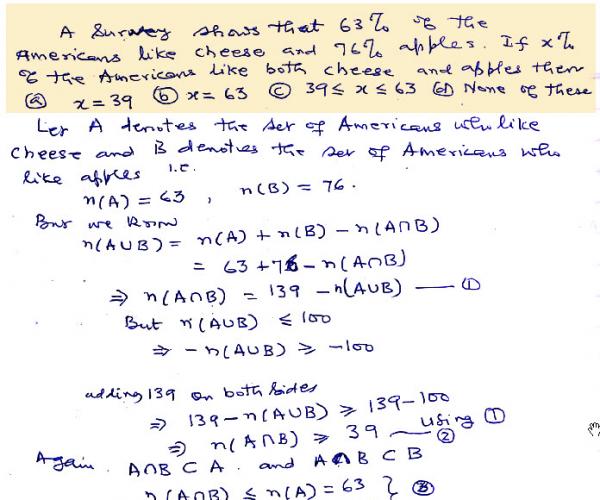 A Survey shows that 63% of the
Americans like cheese and 76% apples. If x%
of the Americans like both cheese and apples then
(a) x = 39 (b) x = 63 (c) 39 ≤ x ≤ 63 (d) None of these
Let A denotes the set of Americans who like
cheese and B denotes the set of Americans who
like apples i.e.
n(A) = 63 , n(B) = 76.
But we know
n(A∪B) = n(A) + n(B) - n(A∩B)
= 63 + 76 - n(A∩B)
⇒ n(A∩B) = 139 - n(A∪B) —— ①
But n(A∪B) ≤ 100
⇒ -n(A∪B) ≥ -100
adding 139 on both sides
⇒ 139 - n(A∪B) ≥ 139 - 100
⇒ n(A∩B) ≥ 39 —— using ①
②
Again A∩B ⊂ A and A∩B ⊂ B
n(A∩B) ≤ n(A) = 63 } ③